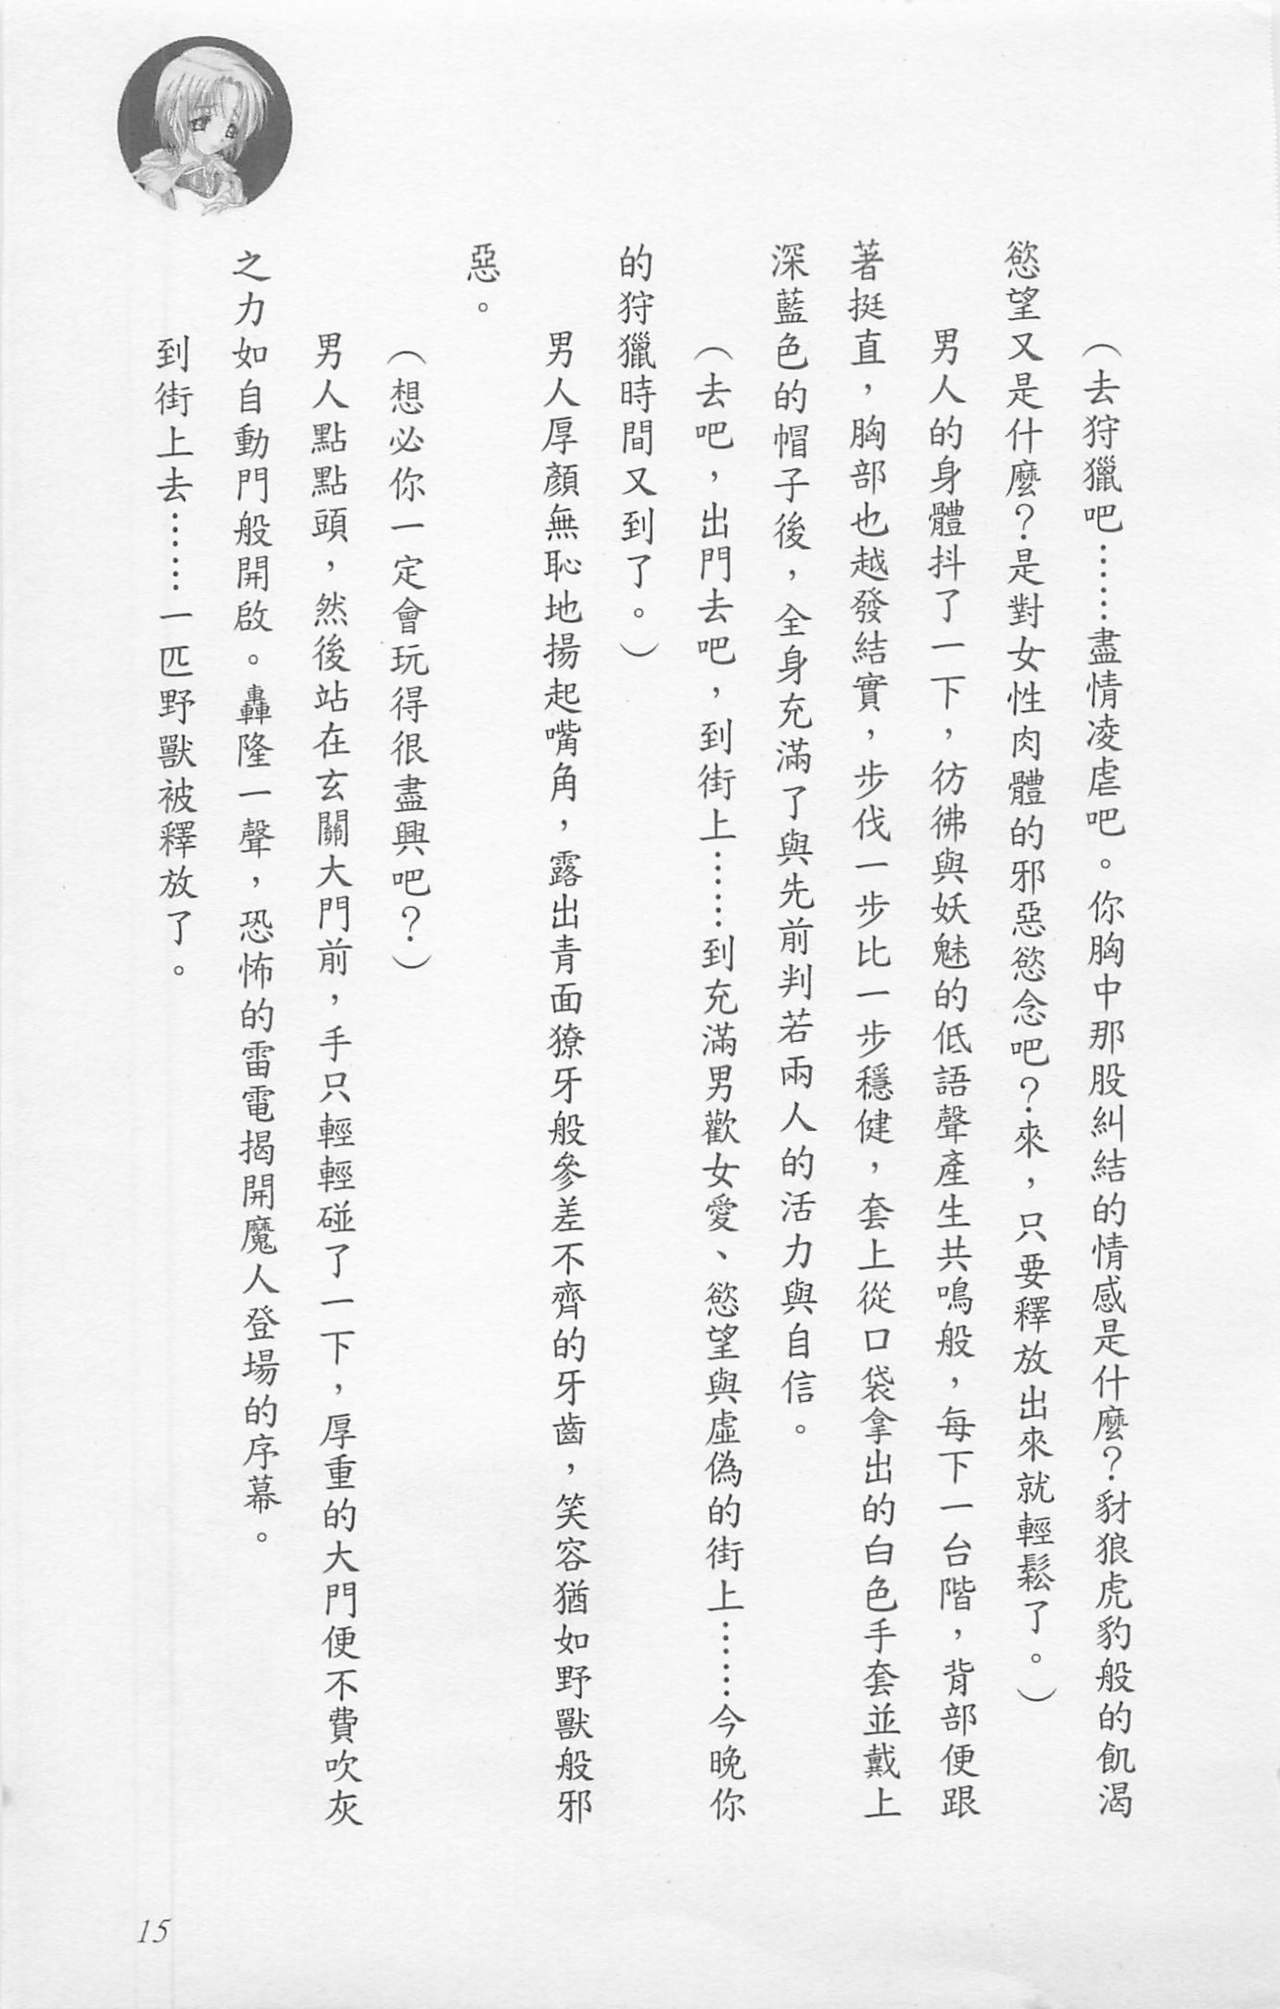 （去狩獵吧……盡情凌虐吧。你胸中那股糾結的情感是什麼？豺狼虎豹般的飢渴
慾望又是什麼？是對女性肉體的邪惡慾念吧？來，只要釋放出來就輕鬆了。）
男人的身體抖了一下，彷彿與妖魅的低語聲產生共鳴般，每下一台階，背部便跟
著挺直，胸部也越發結實，步伐一步比一步穩健，套上從口袋拿出的白色手套並戴上
深藍色的帽子後，全身充滿了與先前判若兩人的活力與自信。
（去吧，出門去吧，到街上……到充滿男歡女愛、慾望與虛偽的街上……今晚你
的狩獵時間又到了。）
男人厚顏無恥地揚起嘴角，露出青面獠牙般參差不齊的牙齒，笑容猶如野獸般邪
惡。
（想必你一定會玩得很盡興吧？）
男人點點頭，然後站在玄關大門前，手只輕輕碰了一下，厚重的大門便不費吹灰
之力如自動門般開啟。轟隆一聲，恐怖的雷電揭開魔人登場的序幕。
到街上去……一匹野獸被釋放了。
15